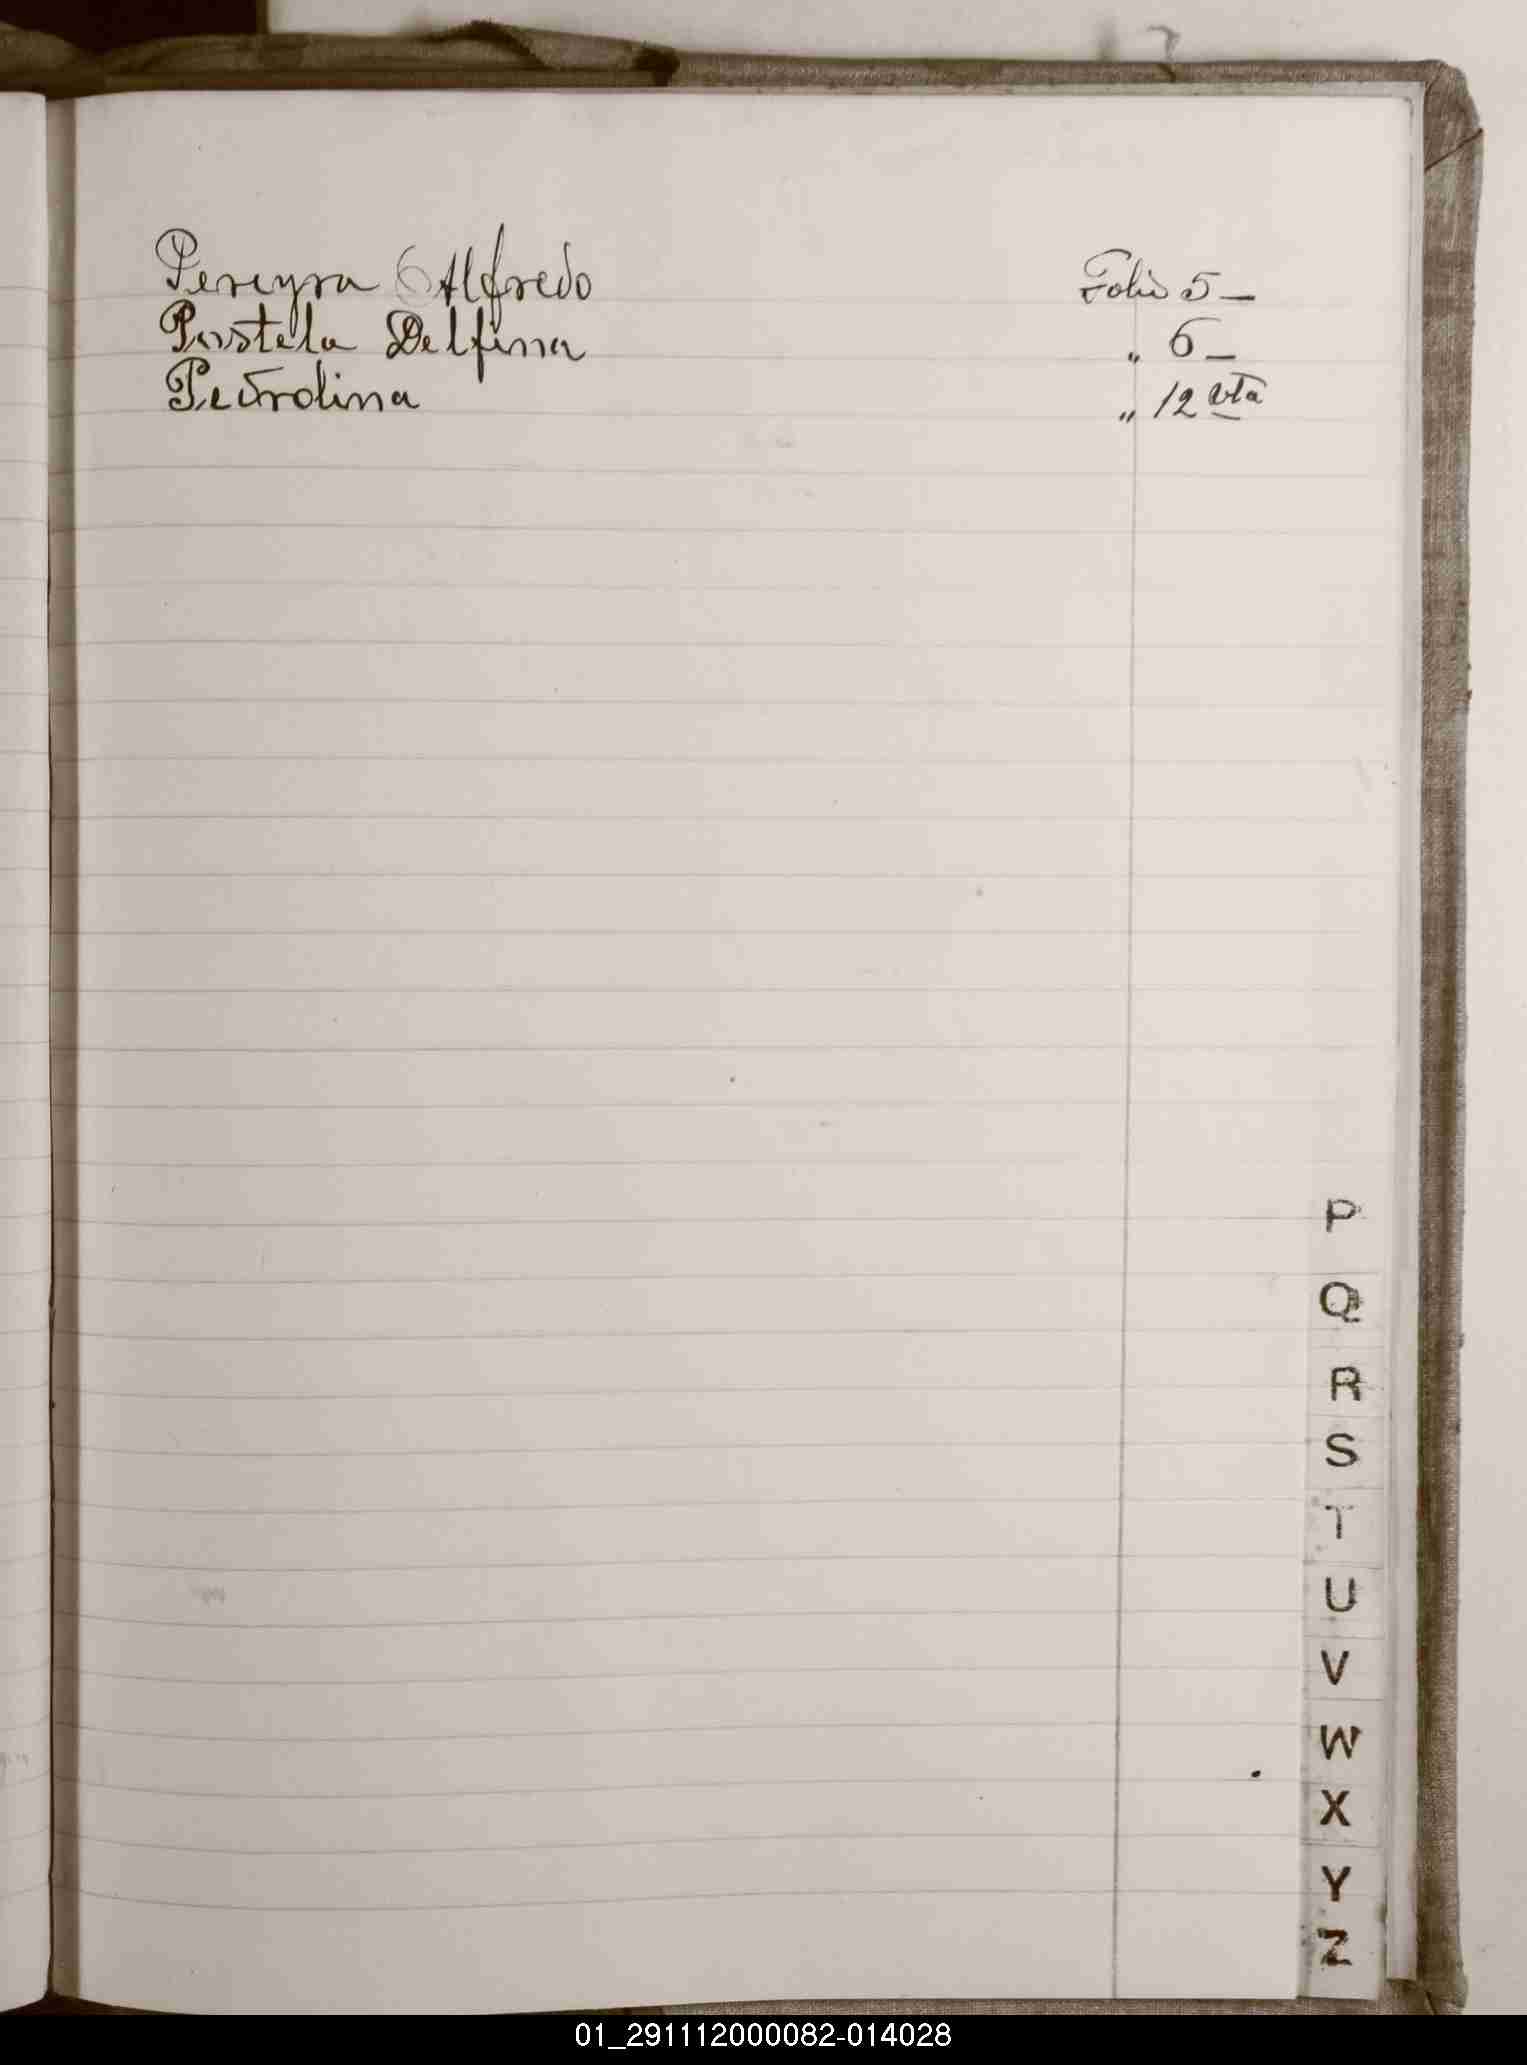 Pereyra Alfredo Folio 5 —
Postela Delfina " 6 —
Petrolina " 12 vta
P
Q
R
S
T
U
V
W
X
Y
Z
01_291112000082-014028